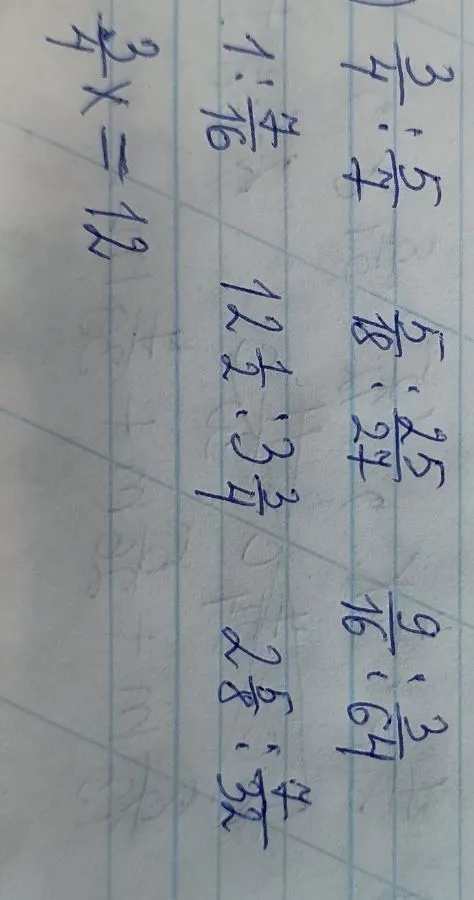 3/4 : 5/7 5/18 : 25/27 9/16 : 3/64
1 : 7/16 12 1/2 : 3 3/4 2 5/8 : 7/32
3/4 x = 12